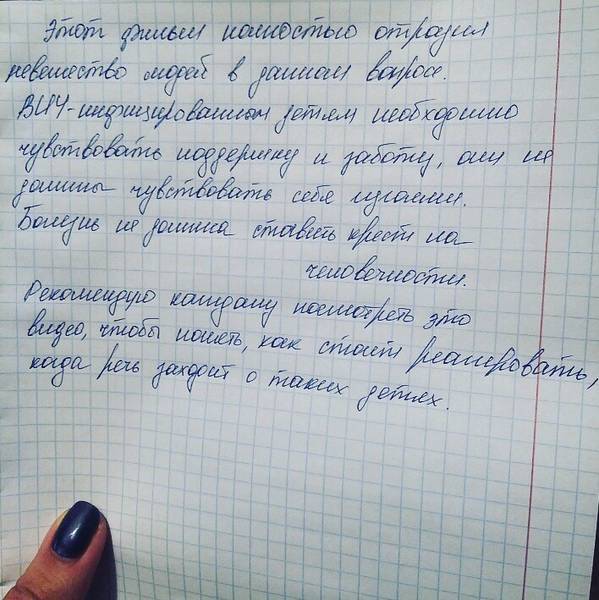 Этот фильм полностью отразил
невежество людей в данном вопросе.
ВИЧ-инфицированным детям необходимо
чувствовать поддержку и заботу, они не
должны чувствовать себя изгоями.
Болезнь не должна ставить крест на
человечности.
Рекомендую каждому посмотреть это
видео, чтобы понять, как стоит реагировать,
когда речь заходит о таких детях.